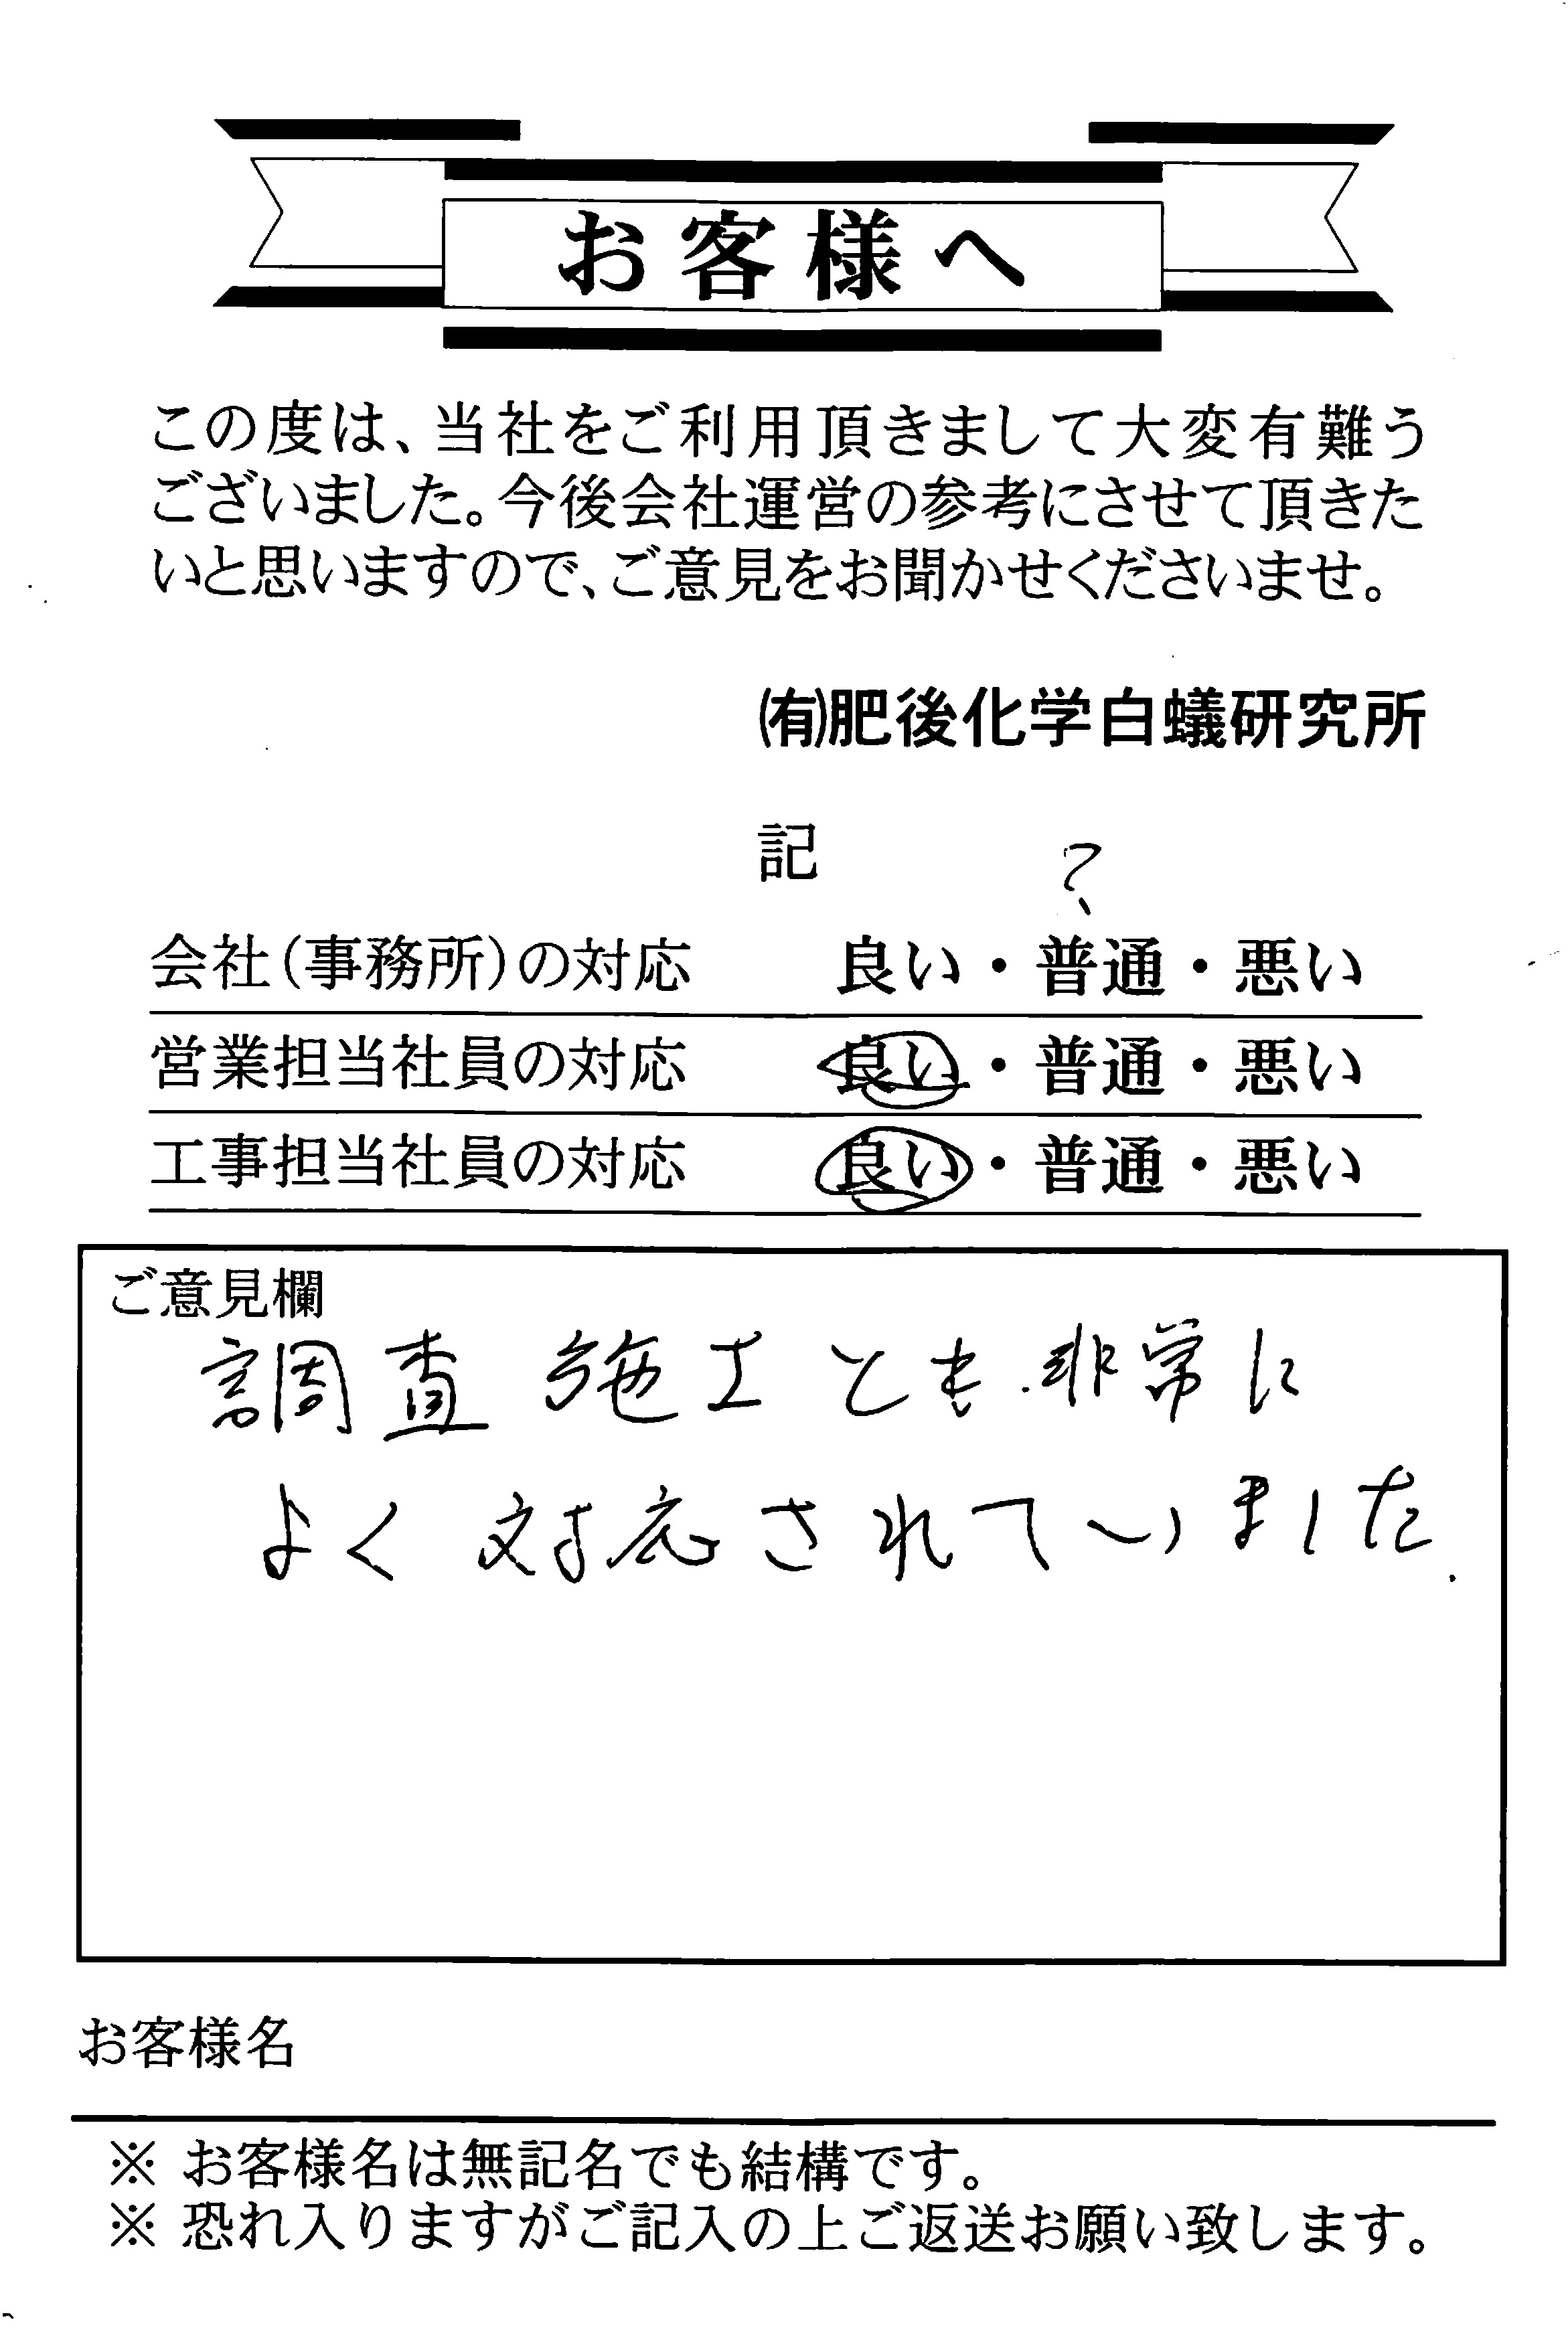 お客様へ
この度は、当社をご利用頂きまして大変有難う
ございました。今後会社運営の参考にさせて頂きた
いと思いますので、ご意見をお聞かせくださいませ。
㈲肥後化学白蟻研究所
記
?
会社(事務所)の対応 良い・普通・悪い
営業担当社員の対応 良い・普通・悪い
工事担当社員の対応 良い・普通・悪い
ご意見欄
調査 施工 とも 非常に
よく 対応されていました.
お客様名
※ お客様名は無記名でも結構です。
※ 恐れ入りますがご記入の上ご返送お願い致します。